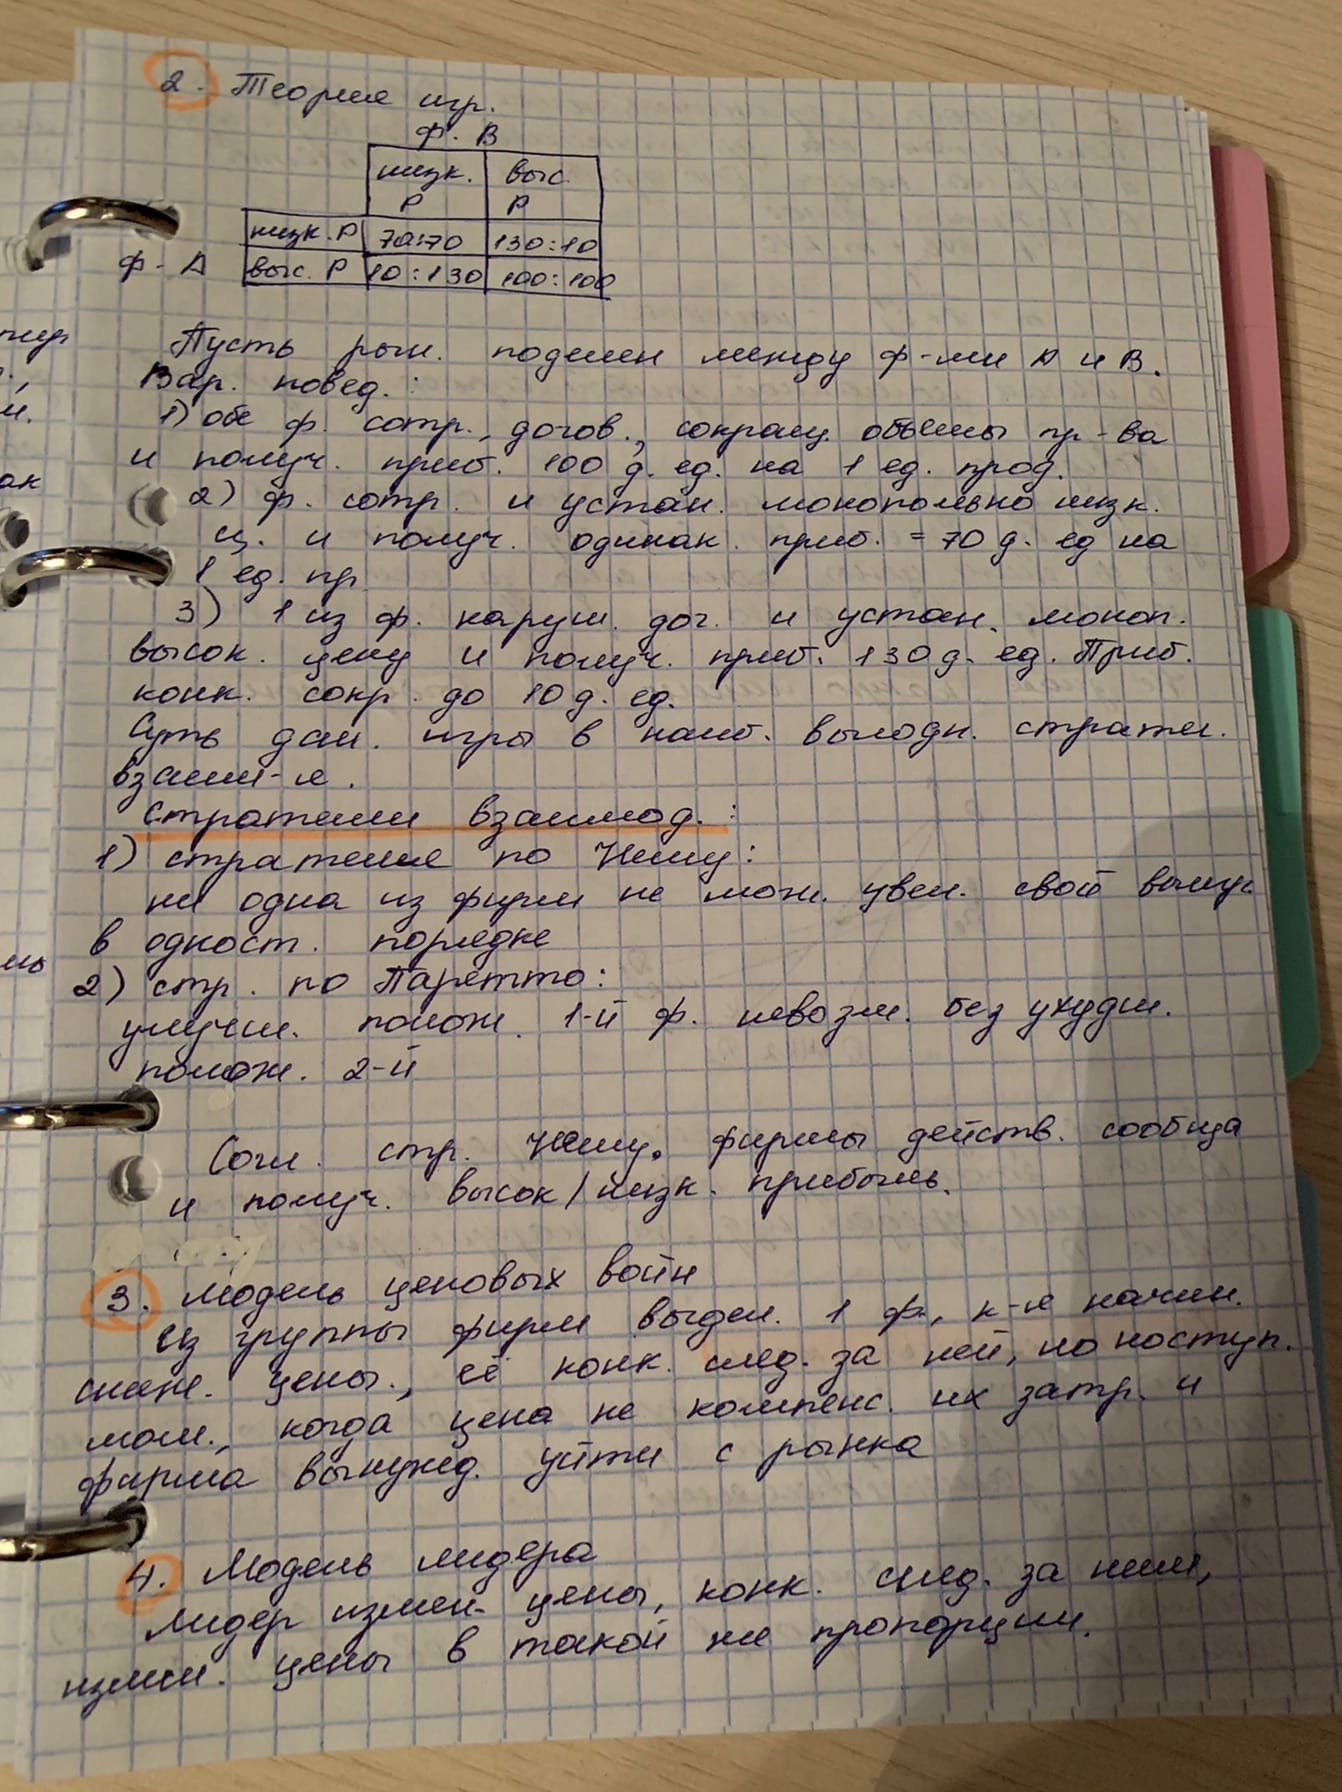 2. Теория игр.
ф. В
низк. Р выс. Р
низк. Р 70:70 130:10
ф-А выс. Р 10:130 100:100
Пусть рын. поделен между ф-ми А и В.
Вар. повед.:
1) обе ф. сотр., догов., сокращ. объемы пр-ва
и получ. приб. 100 д. ед. на 1 ед. прод.
2) ф. сотр. и устан. монопольно низк.
ц. и получ. одинак. приб. = 70 д. ед на
1 ед. пр
3) 1 из ф. наруш. дог. и устан. моноп.
высок. цену и получ. приб. 130 д. ед. Приб.
конк. сокр. до 10 д. ед.
Суть дан. игры в наиб. выгодн. стратег.
взаим-я.
Стратегии взаимод.:
1) стратегия по Нешу:
ни одна из фирм не мож. увел. свой выиг.
в одност. порядке
2) стр. по Паретто:
улучш. полож. 1-й ф. невозм. без ухудш.
полож. 2-й
Согл. стр. Нешу. фирмы действ. сообща
и получ. высок/низк. прибыль.
3. Модель ценовых войн
Из группы фирм выдел. 1 ф., к-я начин.
сниж. цены., её конк. след. за ней, но наступ.
мом., когда цена не компенс. их затр. и
фирма вынужд. уйти с рынка
4. Модель лидера
Лидер измен. цены, конк. след. за ним,
измен. цены в такой же пропорции.